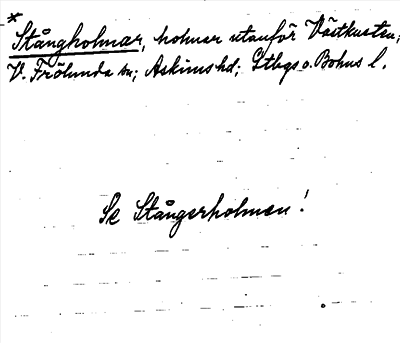 *
Stångholmar, holmar utanför Västkusten;
V. Frölunda sn; Askims hd; Gtbgs o. Bohus l.
Se Stångerholmen!